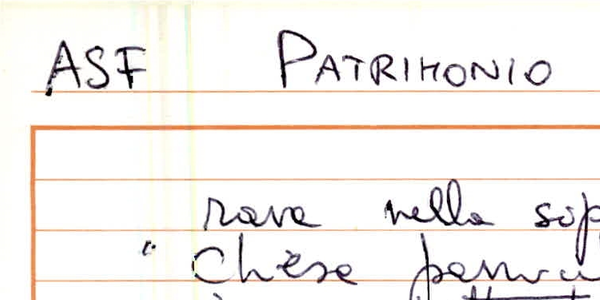 ASF PATRIMONIO
rava nella sop
" Chiesa